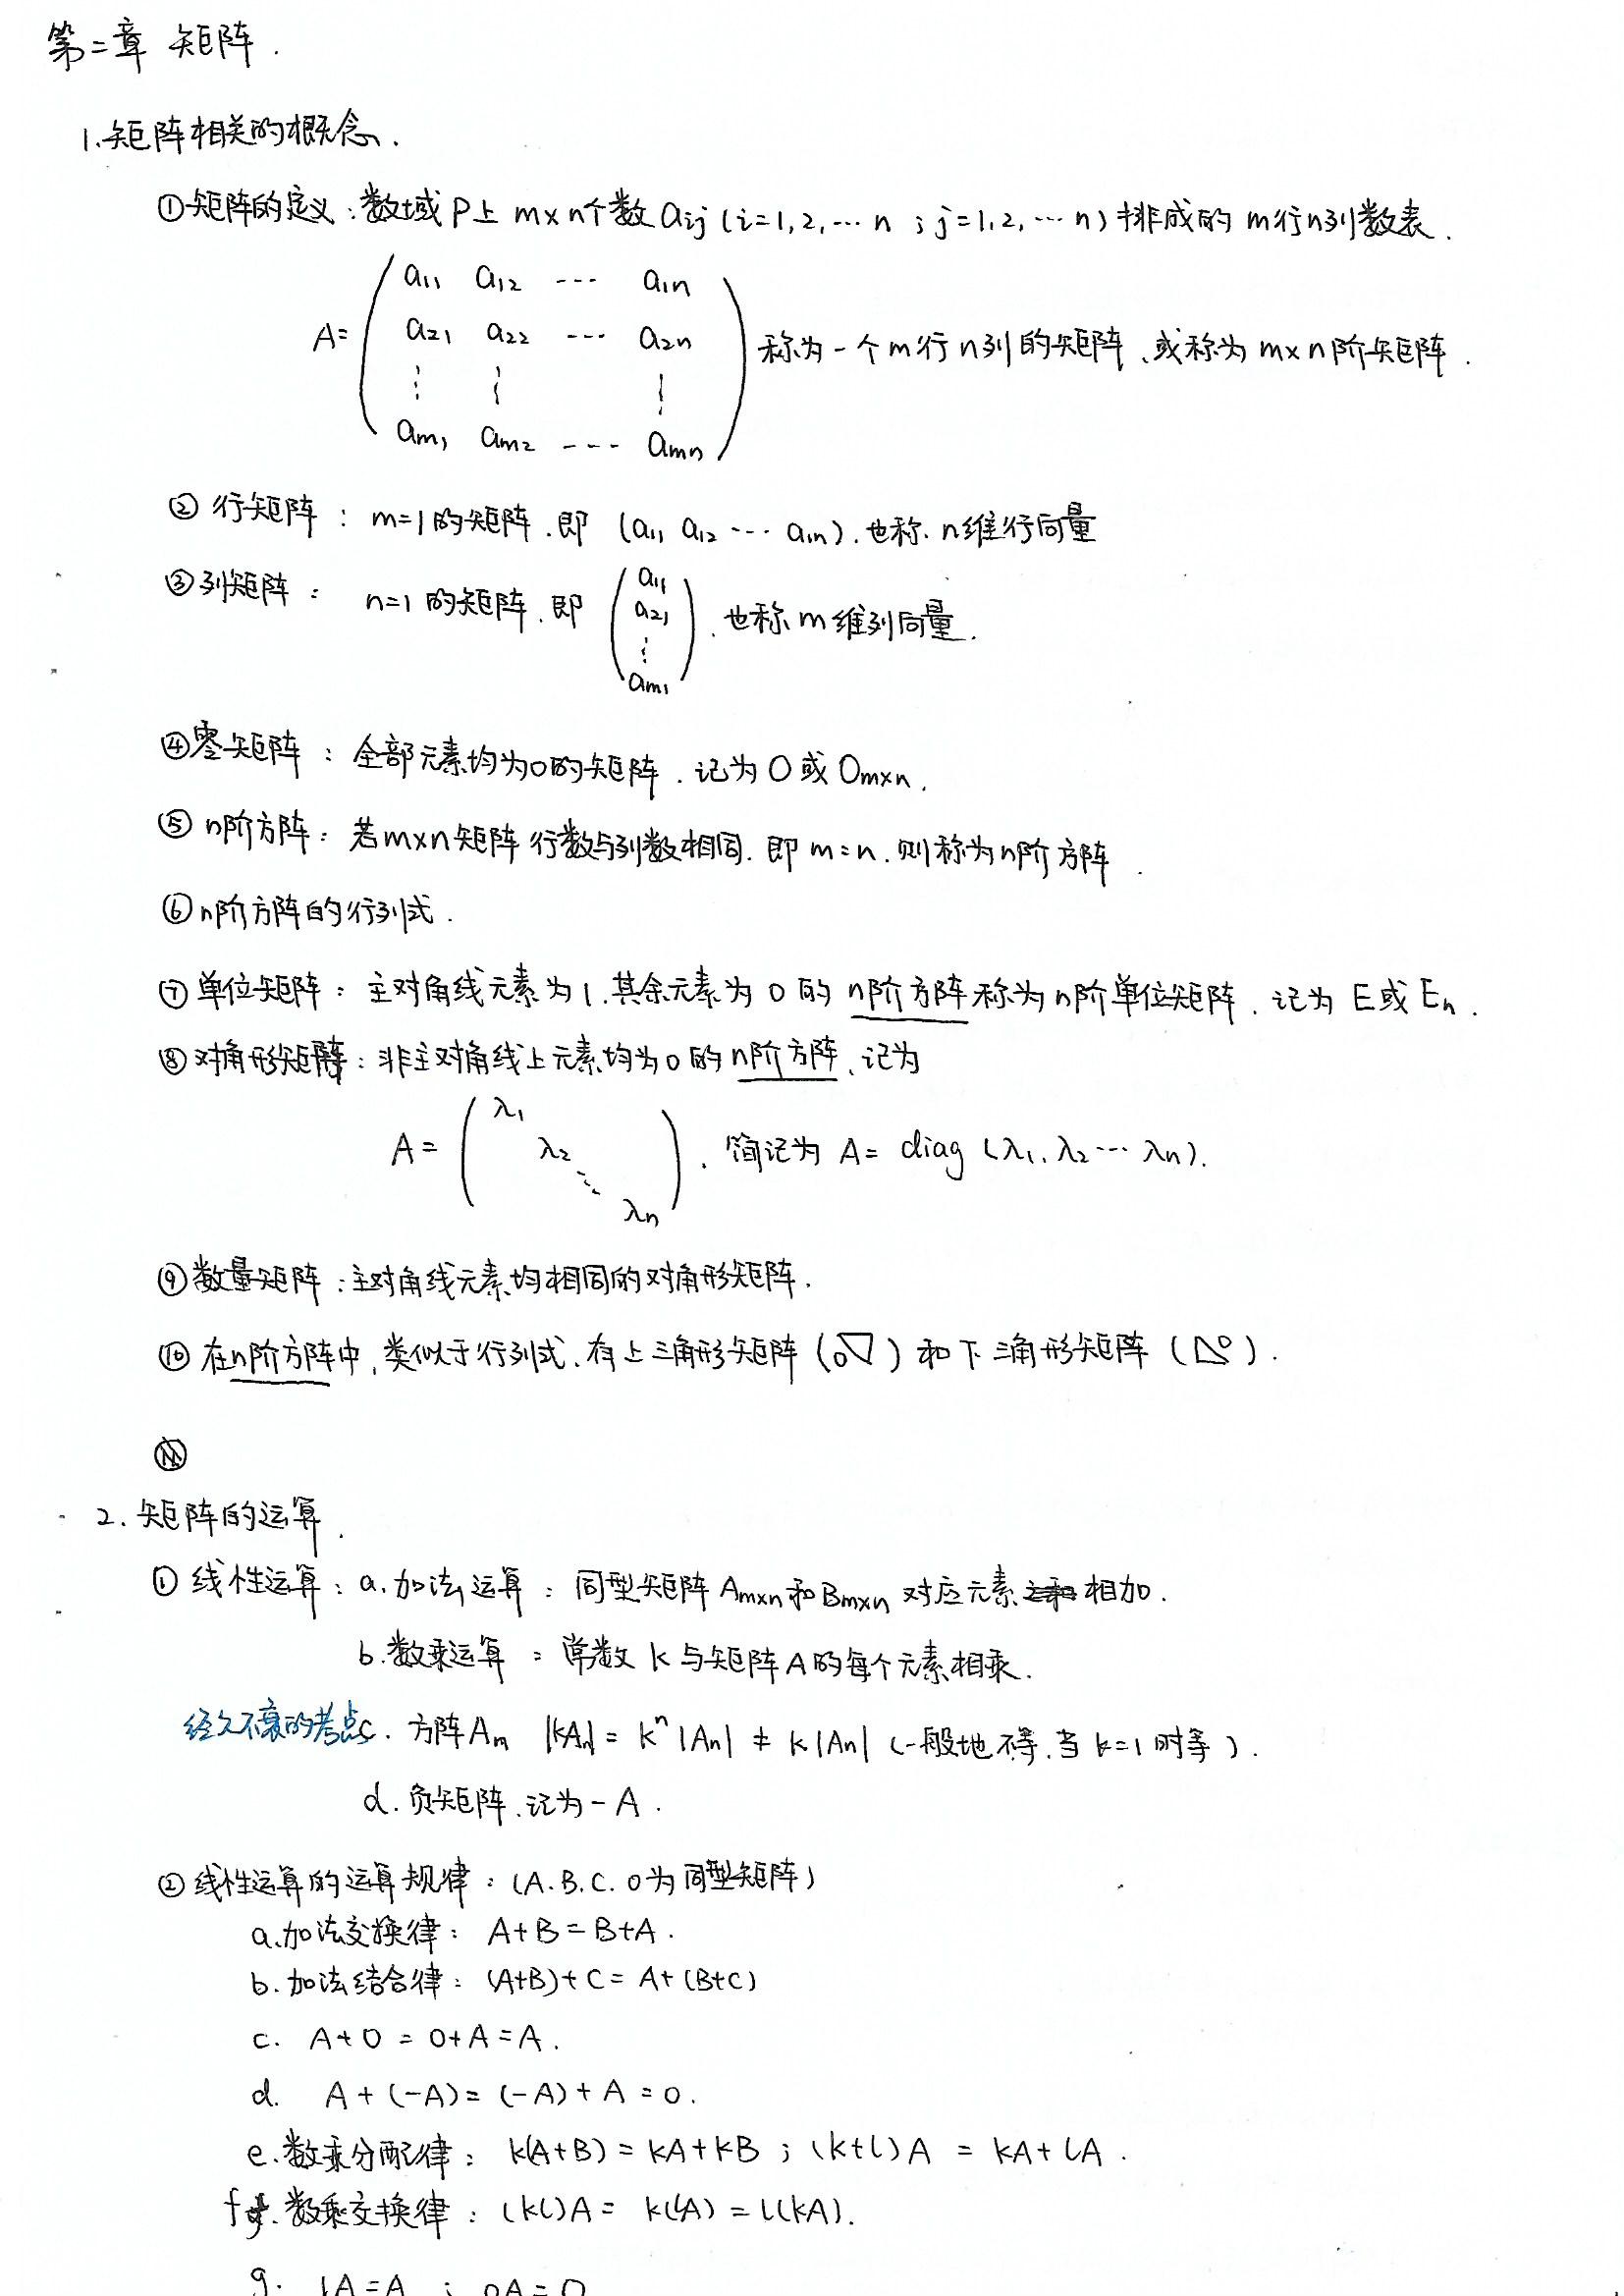 第二章 矩阵.
1.矩阵相关的概念.
①矩阵的定义:数域P上 m×n个数 aij (i=1,2,… n ; j=1,2,… n) 排成的 m行n列数表.
a11 a12 --- a1n
A= a21 a22 --- a2n 称为一个m行n列的矩阵、或称为m×n阶矩阵.
⋮ ⋮ ⋮
am1 am2 ---- amn
② 行矩阵: m=1的矩阵.即 (a11 a12 … a1n).也称.n维行向量
③列矩阵: n=1的矩阵.即 (a11 a21 ⋮ am1).也称m维列向量.
④零矩阵:全部元素均为0的矩阵.记为O或Om×n.
⑤ n阶方阵:若m×n矩阵行数与列数相同.即m=n.则称为n阶方阵.
⑥n阶方阵的行列式.
⑦单位矩阵:主对角线元素为1.其余元素为0的n阶方阵称为n阶单位矩阵.记为E或En.
⑧对角形矩阵:非主对角线上元素均为0的n阶方阵、记为
A= (λ1 λ2 ⋱ λn). 简记为 A= diag (λ1.λ2… λn).
⑨数量矩阵:主对角线元素均相同的对角形矩阵.
⑩在n阶方阵中,类似于行列式.有上三角形矩阵(0▽)和下三角形矩阵(◺0).
2.矩阵的运算.
①线性运算:a.加法运算:同型矩阵Am×n和Bm×n对应元素相加.
b.数乘运算:常数k与矩阵A的每个元素相乘.
经久不衰的考点c. 方阵An |kAn|= kⁿ|An| ≠ k|An| (一般地不等.当k=1时等).
d.负矩阵.记为-A.
②线性运算的运算规律:(A.B.C.0为同型矩阵)
a.加法交换律: A+B=B+A.
b.加法结合律:(A+B)+C= A+(B+C)
c. A+0 = 0+A=A.
d. A+(-A)= (-A)+A=0.
e.数乘分配律: k(A+B)= kA+kB ; (k+l)A = kA+lA.
f.数乘交换律:(kl)A= k(lA) = l(kA).
g. 1A=A ; 0A=0